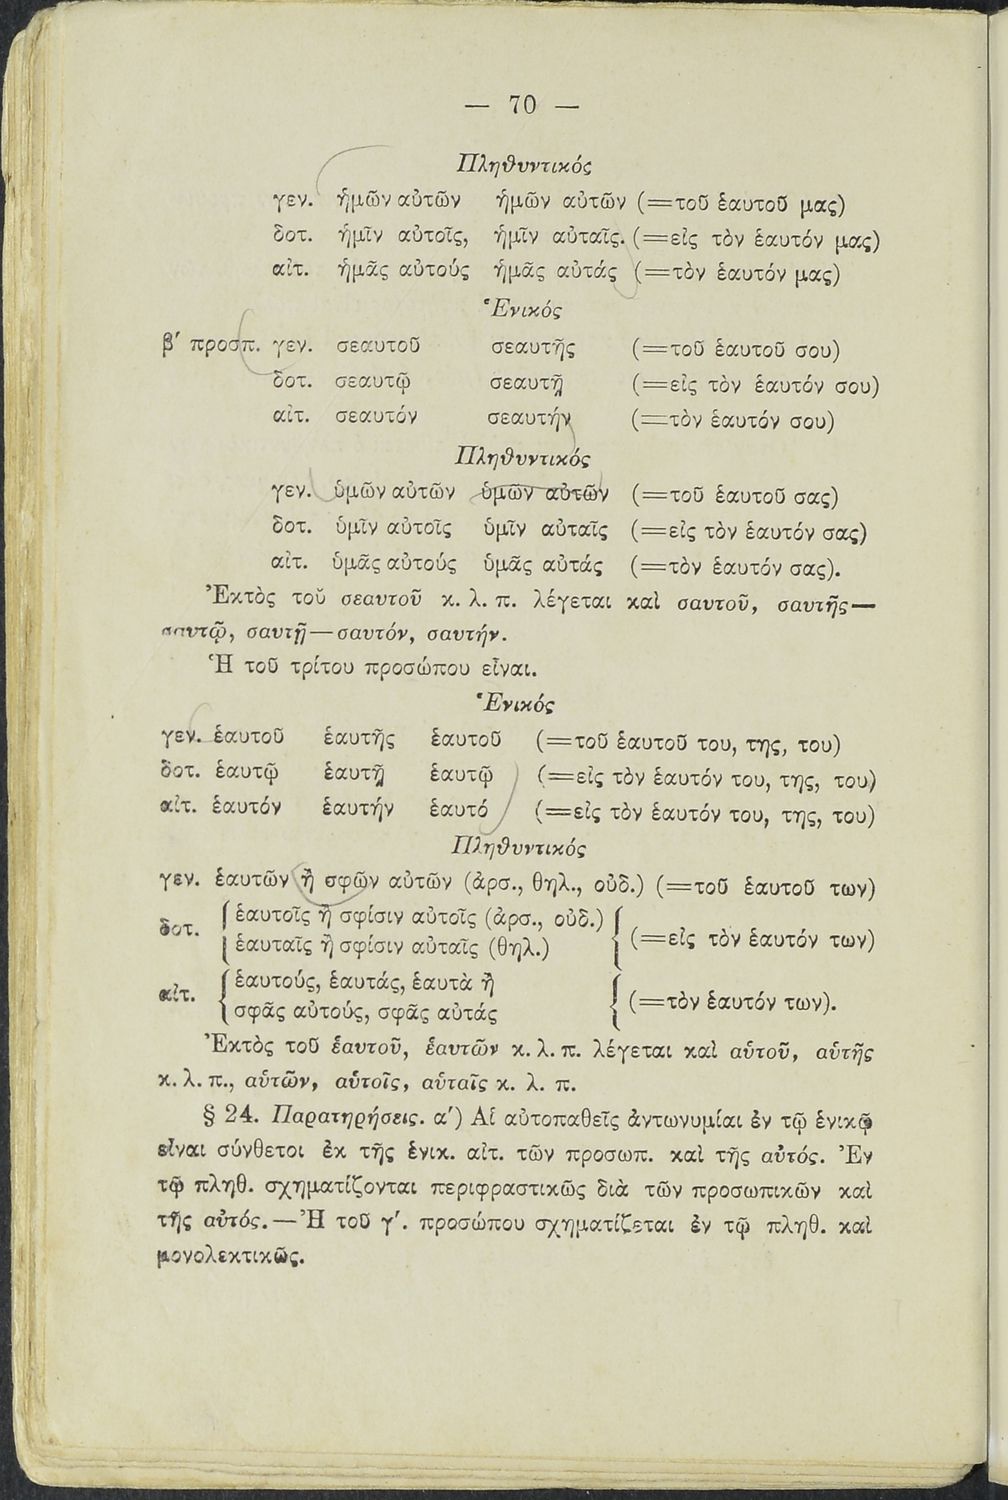 — 70 —
Πληθυντικός
γεν. ἡμῶν αὐτῶν ἡμῶν αὐτῶν (=τοῦ ἑαυτοῦ μας)
δοτ. ἡμῖν αὐτοῖς, ἡμῖν αὐταῖς. (=εἰς τὸν ἑαυτόν μας)
αἰτ. ἡμᾶς αὐτούς ἡμᾶς αὐτάς (=τὸν ἑαυτόν μας)
Ἑνικός
β΄ προσπ. γεν. σεαυτοῦ σεαυτῆς (=τοῦ ἑαυτοῦ σου)
δοτ. σεαυτῷ σεαυτῇ (=εἰς τὸν ἑαυτόν σου)
αἰτ. σεαυτόν σεαυτήν (=τὸν ἑαυτόν σου)
Πληθυντικός
γεν. ὑμῶν αὐτῶν ὑμῶν αὐτῶν (=τοῦ ἑαυτοῦ σας)
δοτ. ὑμῖν αὐτοῖς ὑμῖν αὐταῖς (=εἰς τὸν ἑαυτόν σας)
αἰτ. ὑμᾶς αὐτούς ὑμᾶς αὐτάς (=τὸν ἑαυτόν σας).
Ἐκτὸς τοῦ σεαυτοῦ κ. λ. π. λέγεται καὶ σαυτοῦ, σαυτῆς—
σαυτῷ, σαυτῇ—σαυτόν, σαυτήν.
Ἡ τοῦ τρίτου προσώπου εἶναι.
Ἑνικός
γεν. ἑαυτοῦ ἑαυτῆς ἑαυτοῦ (=τοῦ ἑαυτοῦ του, της, του)
δοτ. ἑαυτῷ ἑαυτῇ ἑαυτῷ (=εἰς τὸν ἑαυτόν του, της, του)
αἰτ. ἑαυτόν ἑαυτήν ἑαυτό (=εἰς τὸν ἑαυτόν του, της, του)
Πληθυντικός
γεν. ἑαυτῶν ἢ σφῶν αὐτῶν (ἀρσ., θηλ., οὐδ.) (=τοῦ ἑαυτοῦ των)
δοτ. { ἑαυτοῖς ἢ σφίσιν αὐτοῖς (ἀρσ., οὐδ.)
ἑαυταῖς ἢ σφίσιν αὐταῖς (θηλ.) { (=εἰς τὸν ἑαυτόν των)
αἰτ. { ἑαυτούς, ἑαυτάς, ἑαυτὰ ἢ
σφᾶς αὐτούς, σφᾶς αὐτάς { (=τὸν ἑαυτόν των).
Ἐκτὸς τοῦ ἑαυτοῦ, ἑαυτῶν κ. λ. π. λέγεται καὶ αὑτοῦ, αὑτῆς
κ. λ. π., αὑτῶν, αὑτοῖς, αὑταῖς κ. λ. π.
§ 24. Παρατηρήσεις. α΄) Αἱ αὐτοπαθεῖς ἀντωνυμίαι ἐν τῷ ἑνικῷ
εἶναι σύνθετοι ἐκ τῆς ἑνικ. αἰτ. τῶν προσωπ. καὶ τῆς αὐτός. Ἐν
τῷ πληθ. σχηματίζονται περιφραστικῶς διὰ τῶν προσωπικῶν καὶ
τῆς αὐτός.—Ἡ τοῦ γ΄. προσώπου σχηματίζεται ἐν τῷ πληθ. καὶ
μονολεκτικῶς.